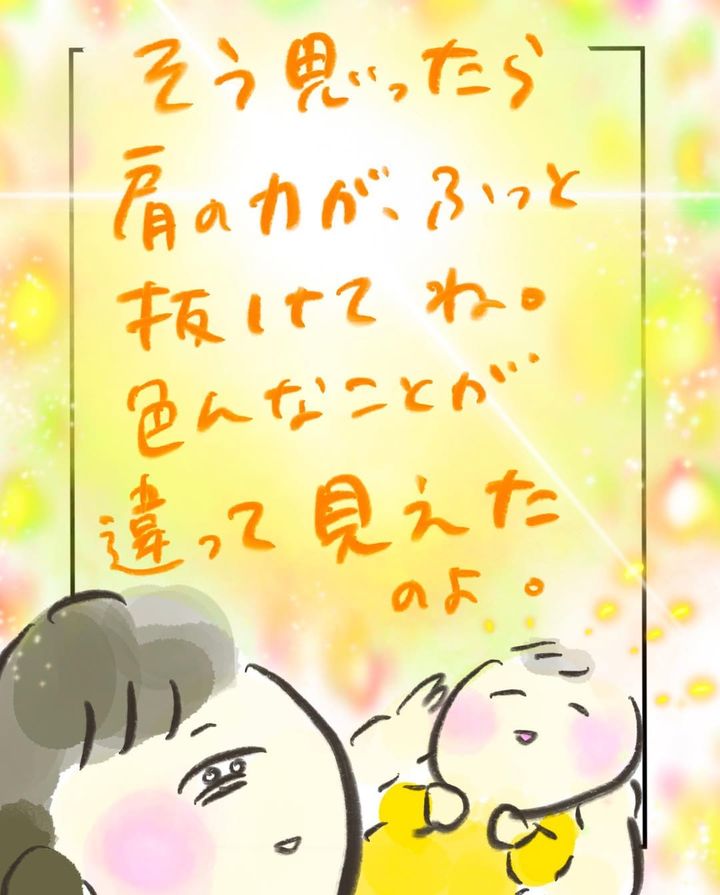 そう思ったら
肩の力が、ふっと
抜けてね。
色んなことが
違って見えた
のよ。